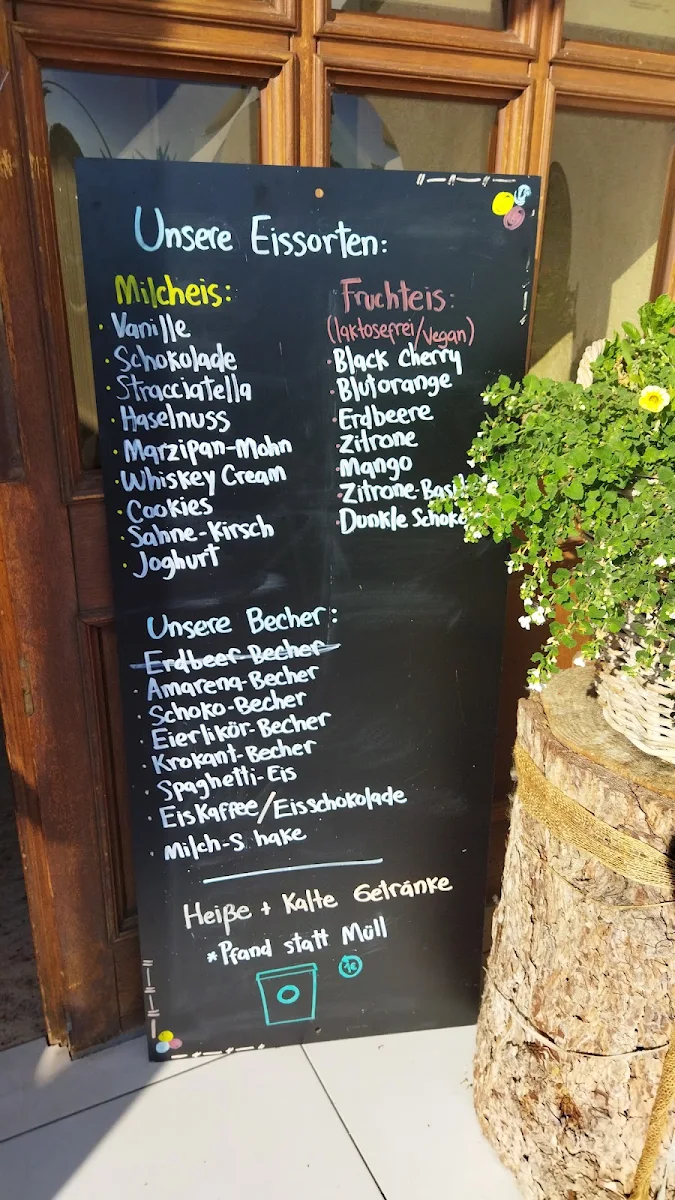 Unsere Eissorten:
Milcheis:
Vanille
Schokolade
Stracciatella
Haselnuss
Marzipan-Mohn
Whiskey Cream
Cookies
Sahne-Kirsch
Joghurt
Fruchteis:
(laktosefrei/vegan)
Black Cherry
Blutorange
Erdbeere
Zitrone
Mango
Dunkle Schoko
Unsere Becher:
Erdbeer-Becher
Amarena-Becher
Schoko-Becher
Eierlikör-Becher
Krokant-Becher
Spaghetti-Eis
Eiskaffee/Eisschokolade
Milch-Shake
Heiße + Kalte Getränke
*Pfand statt Müll
1€